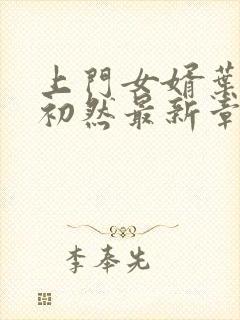 上門女婿葉
初然最新章
李奉先